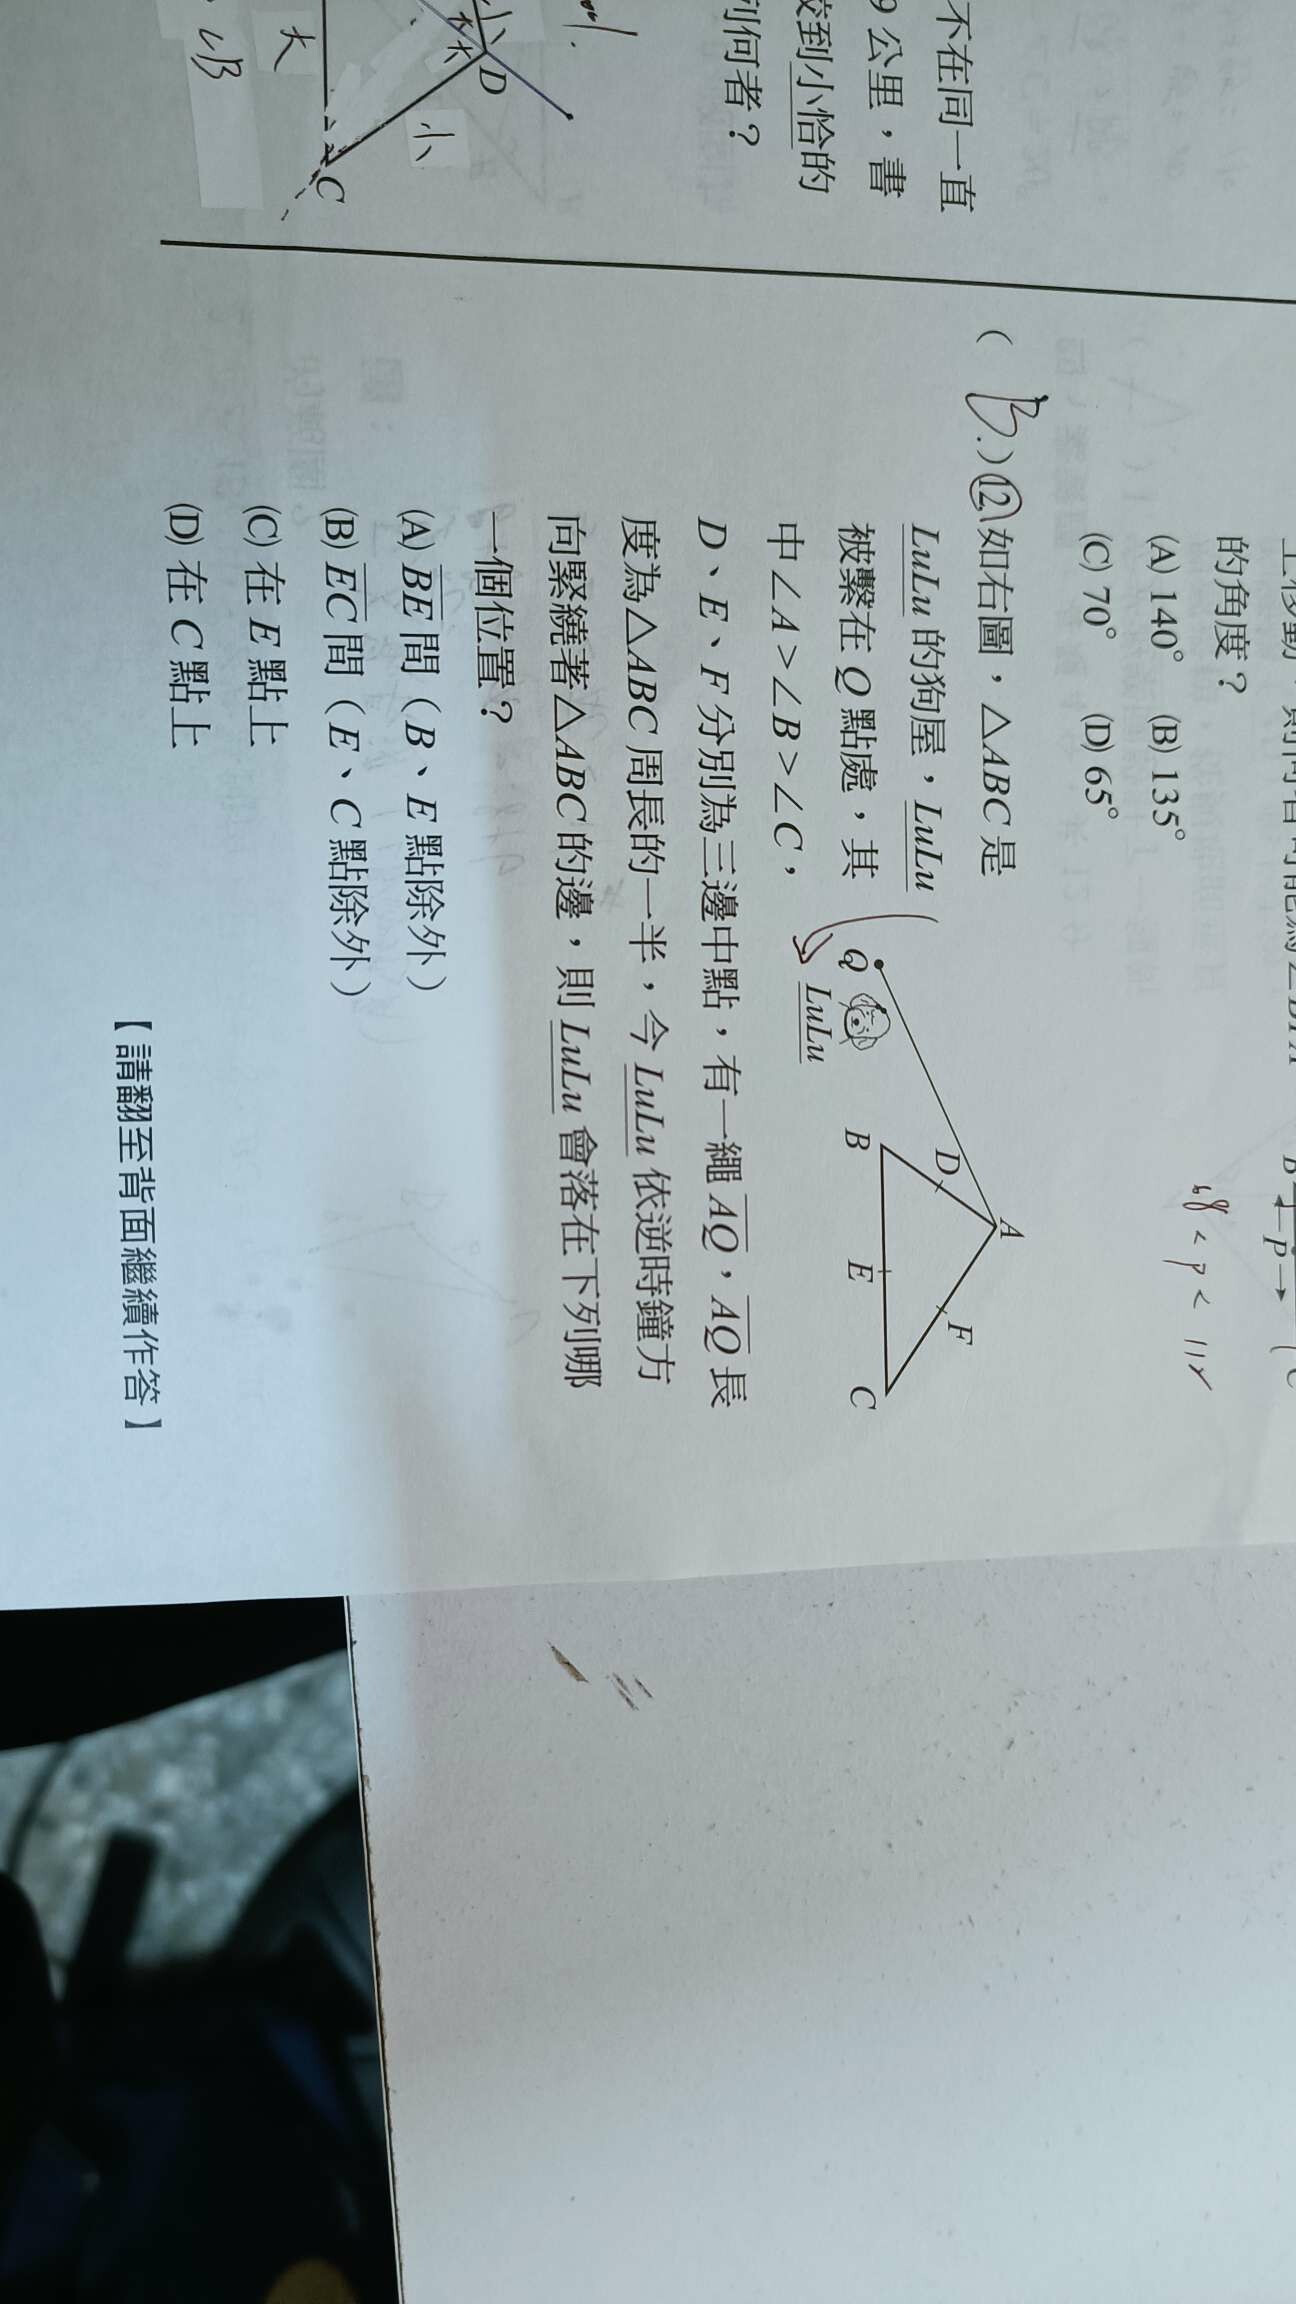 不在同一直
9 公里，書
到小恰的
列何者？
D
C
小
大
的角度？
(A) 140° (B) 135°
(C) 70° (D) 65°
68 < P <
P→
( B ) 12. 如右圖，△ABC 是
LuLu 的狗屋，LuLu
被繫在 Q 點處，其
中∠A＞∠B＞∠C，
D、E、F 分別為三邊中點，有一繩 AQ，AQ 長
度為△ABC 周長的一半，今 LuLu 依逆時鐘方
向緊繞著△ABC 的邊，則 LuLu 會落在下列哪
一個位置？
(A) BE 間（B、E 點除外）
(B) EC 間（E、C 點除外）
(C) 在 E 點上
(D) 在 C 點上
A
D
F
Q
B
E
C
LuLu
【請翻至背面繼續作答】